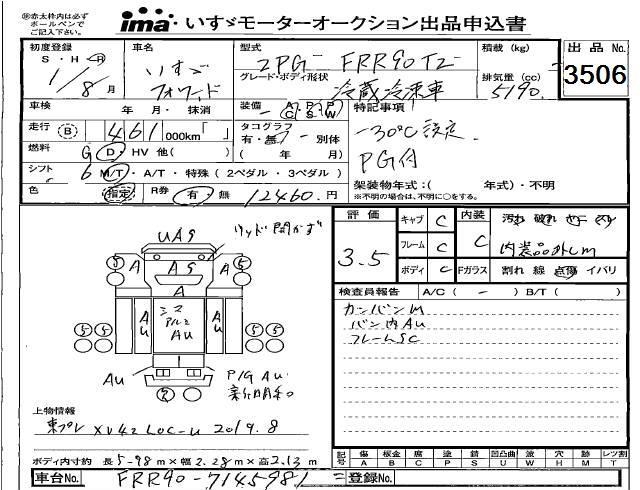 ㊟赤太枠内は必ず
ボールペンで
ご記入下さい。
ima いすゞモーターオークション出品申込書
初度登録 車名 型式 積載(kg) 出品No.
S・H・R いすゞ 2PG- FRR90T2-
1/8月 フォワード グレード・ボディ形状 冷蔵冷凍車 排気量(cc) 5190. 3506
車検 年 月・抹消 装備 A/C P/S P/W 特記事項
走行 B 461 000km「 」 タコグラフ 有・無 別体 -30℃設定.
燃料 G D・HV 他( ) ( 年 月) PG付
シフト 6 M/T・A/T・特殊(2ペダル・3ペダル) 架装物年式:( 年式)・不明
色 指定 R券 有・無 12460.円 ※不明の場合は、不明に○をする。
評価 キャブ C 内装 汚れ 破れ
3.5 フレーム C C 内装品外しM
ボディ C Fガラス 割れ 線 点傷 イバリ
検査員報告 A/C( - ) B/T( )
カンバンM
バン内AU
フレームSC
UA9 ウッド開かず
5 A A9 A 5
A
5 5 A U シミ アルミ AU A U 5 5
AU P/G AU
上物情報
東プレ XV42LOC-U 2019.8
ボディ内寸約 長5-98m×幅2.28m×高2.13m
記号 傷 A 板金 B 腐 C 塗 P 錆 S 凹凸曲 U 波 W 穴 H 欠 M レツ割 T
車台No. FRR90-7145981 登録No.